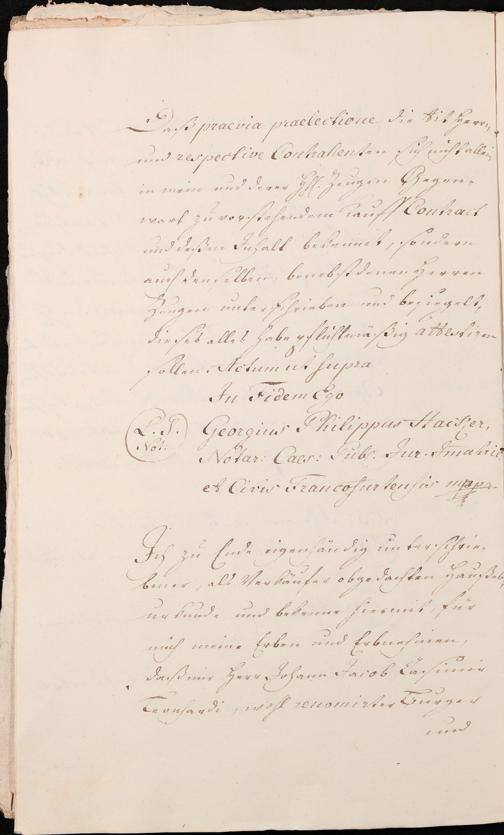 Daß praevia praelectione die tit Herrn
und respective Contrahenten sich nicht allein
in mein und derer Hh. Zeugen Gegen-
wart zu vorstehendem Kauff Contract
und deßen Inhalt bekennet, sondern
auch denselben, benebst denen Herren
Zeugen unterschrieben und besiegelt,
dieses alles habe pflichtmäßig attestiren
sollen. Actum ut supra
In Fidem Ego
L. S. Georgius Philippus
Not: Notar: Caes: Publ: Jur: Immatric
et Civis Francofurtensis mppr
Ich zu Ende eigenhändig unterschrie-
bener, als Verkäufer obgedachten Haußes
urkunde und bekenne hiermit, für
mich meine Erben und Erbnehmen,
daß mir Herr Johann Jacob Casimir
Leonhardi, wohl renomirter Burger
und